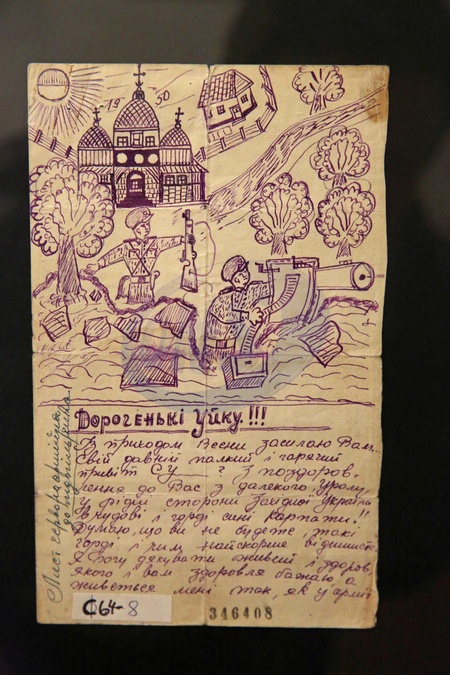 19 50
Дорогенькі Уйку!!!
З приходом Весни засилаю Вам
Свій давній палкий і гарячий
привіт СУ ? З поздоров-
лення до Вас з далекого Уралу,
у рідні сторони Західної України
в чудові і горді сині Карпати!!
Думаю, що ви не будете такі
горді і чим найскорше відпишете
Я Богу дякувати живий і здоров
якого і вам здоровля бажаю, а
живеться мені так, як у армії
Лист червоноармійця
до підпільника
С64-8
346408